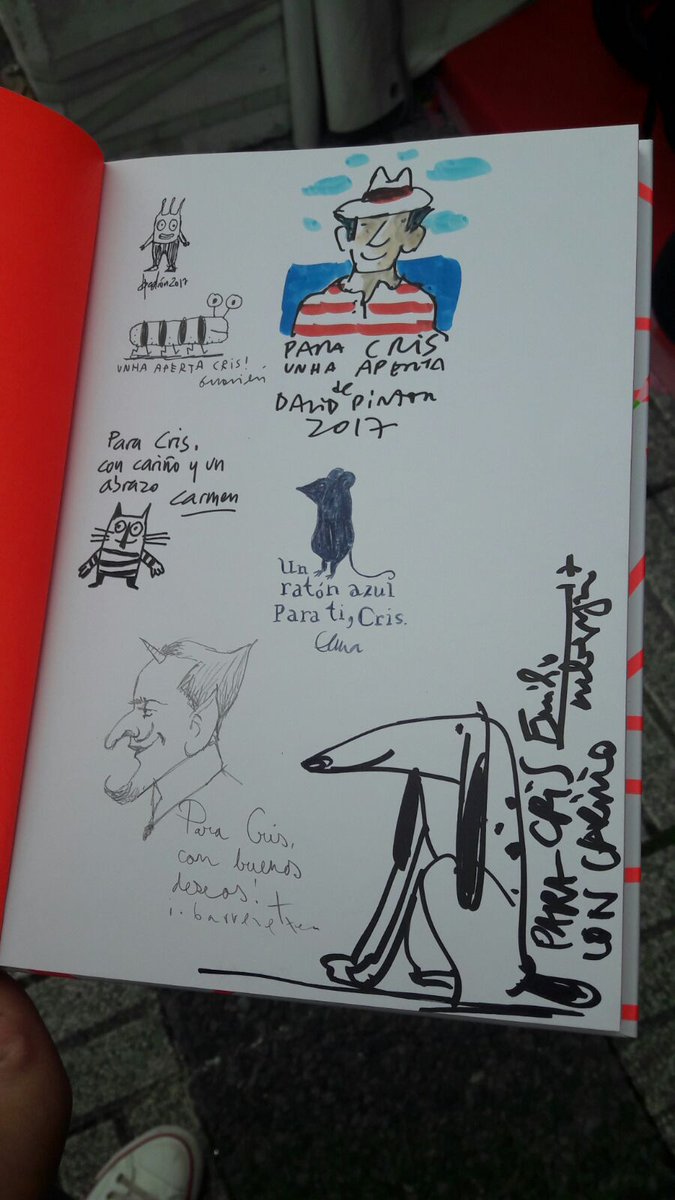 2017
PARA CRIS
UNHA APERTA
de
DAVID PINTOR
2017
UNHA APERTA CRIS!
Para Cris,
con cariño y un
abrazo
Carmen
Un
ratón azul
Para ti, Cris.
Para Cris,
con buenos
deseos!
PARA CRIS
CON CARIÑO
Emilio